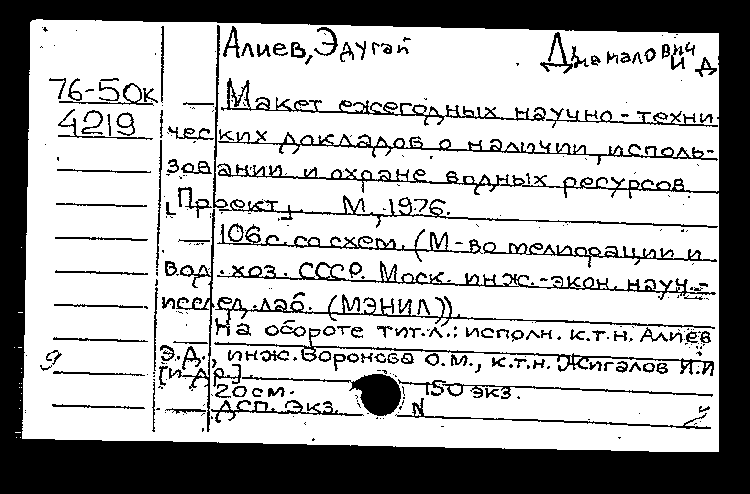 Алиев, Эдугай Джамалович
и д
76-50к
4219
Макет ежегодных научно-техни-
ческих докладов о наличии, исполь-
зовании и охране водных ресурсов.
[Проект]. М., 1976.
106 с. со схем. (М-во мелиорации и
вод. хоз. СССР. Моск. инж.-экон. науч.-
исслед. лаб. (МЭНИЛ)).
На обороте тит. л.: исполн. к.т.н. Алиев
Э.Д., инж. Воронова О.М., к.т.н. Жигалов И.И
9
[и др.].
20 см. 150 экз.
ДСП. Экз. N